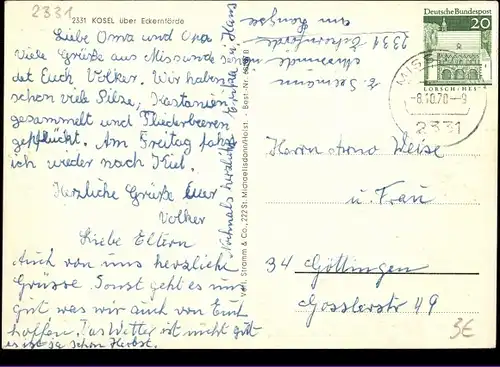 2331
2331 KOSEL über Eckernförde
Liebe Oma und Opa
Viele Grüße aus Missunde sen
det Euch Volker. Wir haben
schon viel Pilze, Kastanien
gesammelt und Fliederbeeren
gepflückt. Am Freitag fahre
ich wieder nach Kiel.
Herzliche Grüße Euer
Volker
Liebe Eltern
Auch von uns herzliche
Grüsse. Sonst geht es uns
gut was wir auch von Euch
hoffen. Das Wetter ist nicht gut
es ist ja schon Herbst.
Nochmals herzliche u. Hans
Verl. Stramm & Co., 222 St. Michaelisdonn/Holst. - Best.-Nr.
2331 Eckernförde
Missunde
Deutsche Bundespost
20
LORSCH/HESSEN
MISSUNDE
-8.10.70-9
2331
Herrn Arno Weise
u. Frau
34 Göttingen
Gosslerstr 49
3€